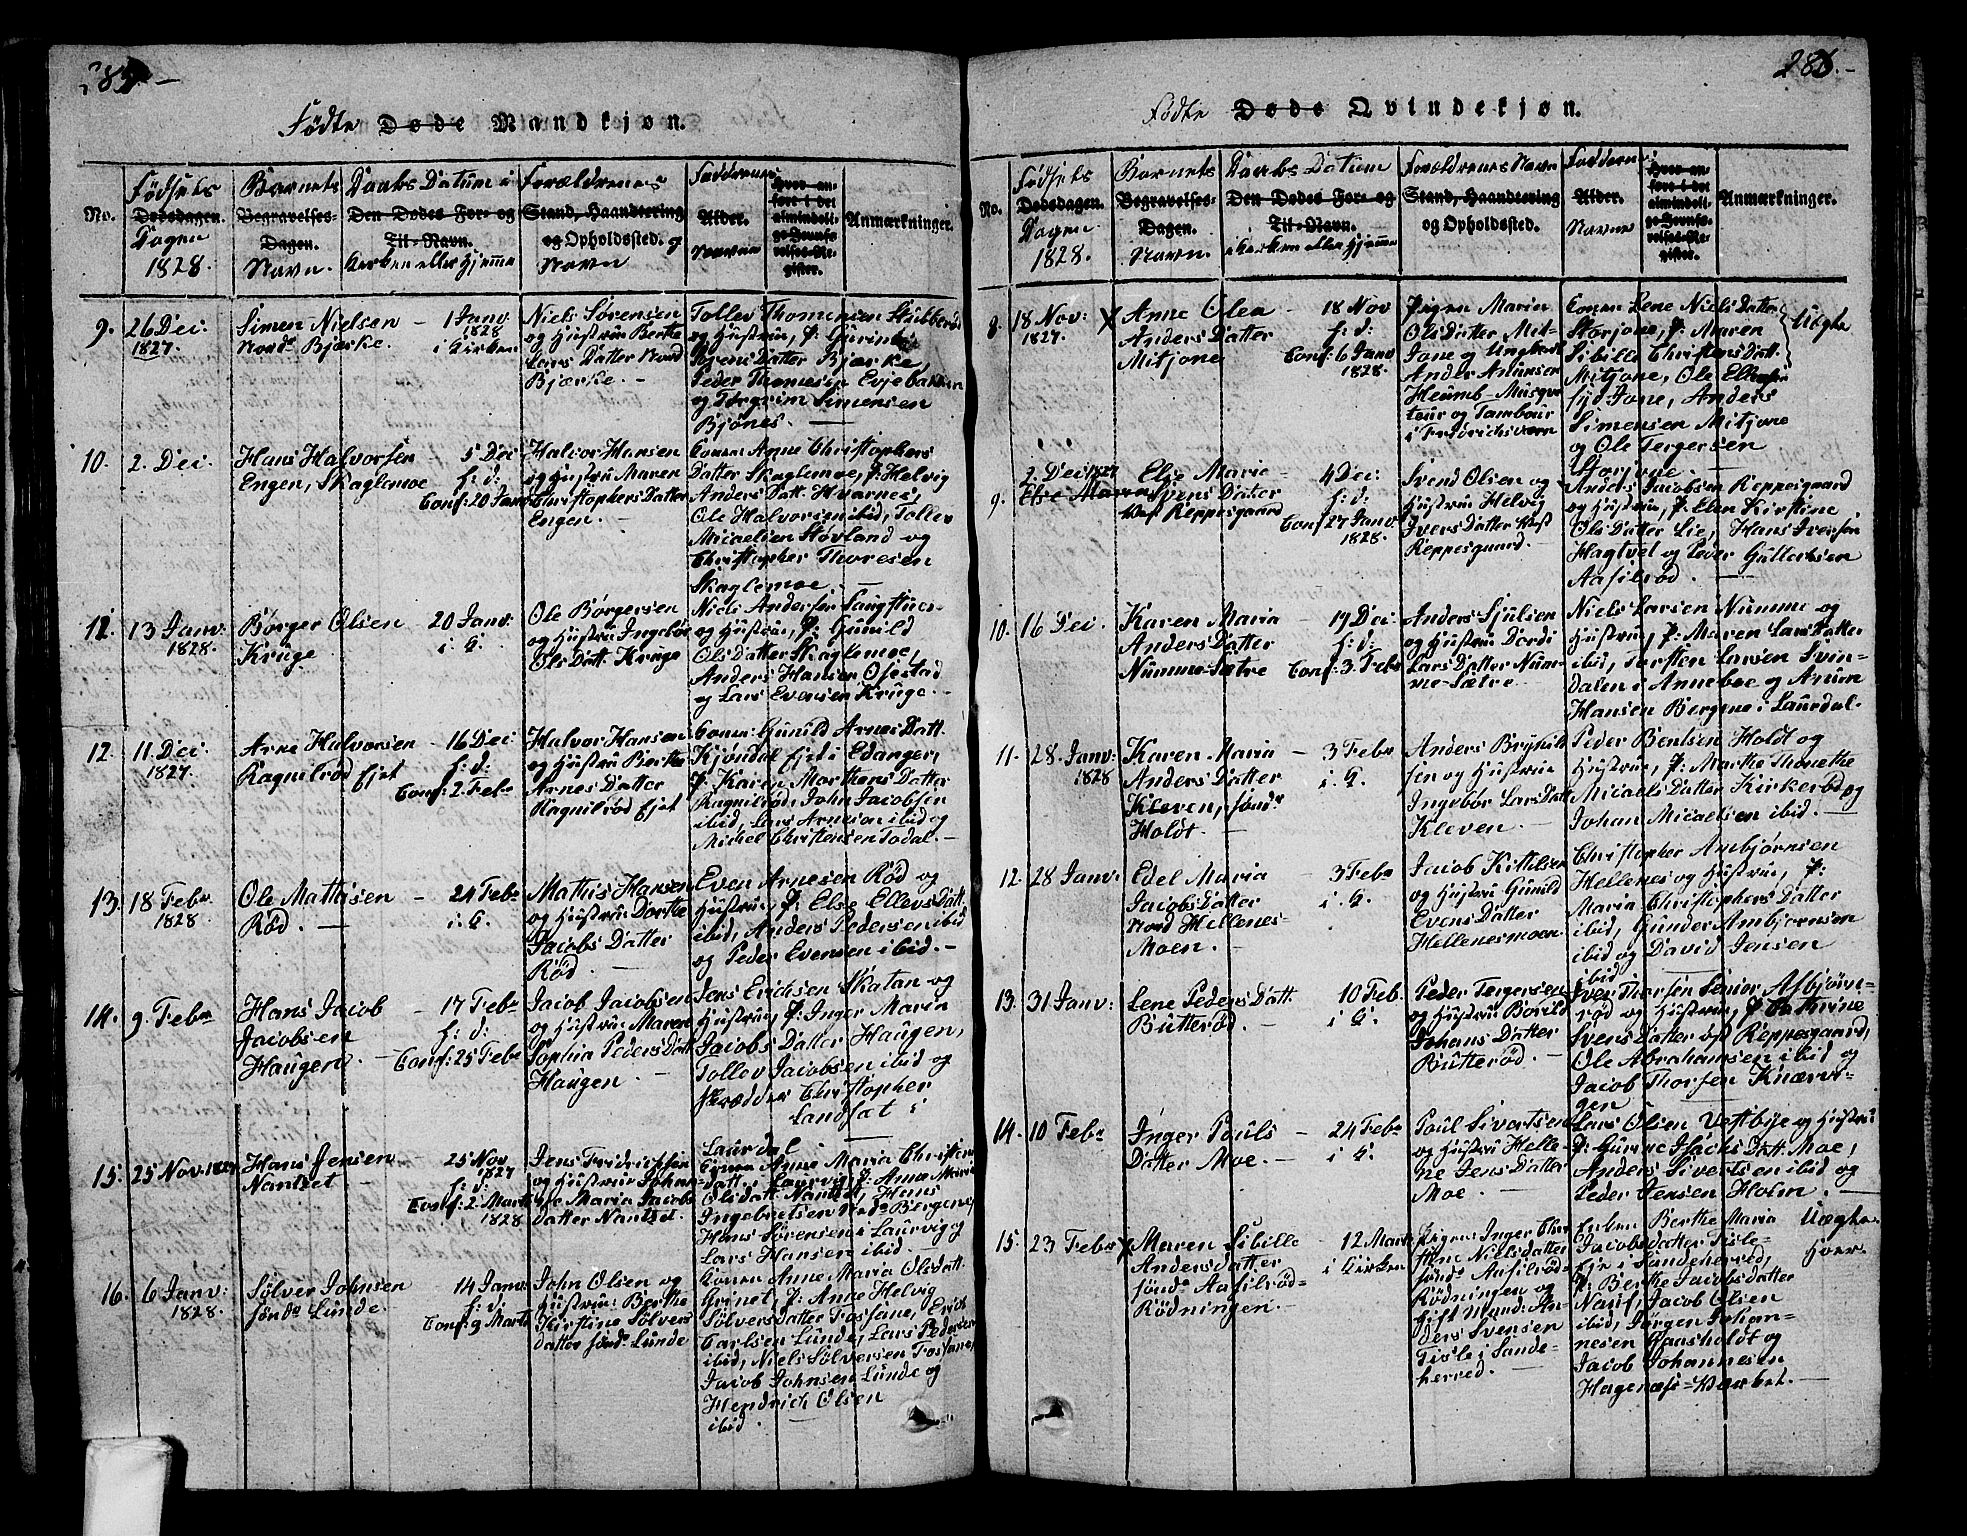 Fødte Døde Mandkjøn.
No.
Fødsels
Dødsdagen.
Dagen
1828.
Barnets
Begravelses-
Dagen.
Navn.
Daabs Datum i
Den Dødes For- og
Til-Navn.
kirken eller hjemme
Forældrenes
Stand, Haandtering
og Opholdssted. og
Navn
Fadderne
Alder.
Navne
Hvor an-
ført i det
almindeli-
ge Jevnfø-
relses-Re-
gister.
Anmærkninger.
9.
26 Dec:
1827.
Simen Nielsen
Nord. Bjærke.
1 Janv
1828
i Kirken
Niels Sørensen
og Hustrue Berthe
Lars Datter Nord
Bjærke. —
Tollev Thomesen Stubberød
og Hustrue, P: Gurine
Sørens Datter Bjærke,
Peder Thomesen Evjebakken
og Torgrim Simensen
Bjønes. —
10.
2. Dec:
Hans Halvorsen
Engen, Skaglemoe
5 Dec
h: d:
Conf: 20 Janv
Halvor Hansen
og Hustrue Maren
Christophers Datter
Engen. —
Konen Anne Christophers
Datter Skaglemoe, P: Helvig
Anders Datt. Hvarnes,
Ole Halvorsen ibid, Tollev
Micaelsen Hovland og
Christopher Thoresen
Skaglemoe. —
11.
13 Janv:
1828.
Børger Olsen
Kruge
20 Janv:
i K.
Ole Børgersen
og Hustrue Ingebør
Ols Datt. Kruge
Niels Andersen
og Hustrue, P: Gunild
Ols Datter Skaglemoe,
Anders Hansen Ojestad
og Lars Evensen Kruge. —
12.
11. Dec:
1827.
Arne Halvorsen
Ragnilrød Ejet
16 Dec
h: d:
Conf: 2 Feb.
Halvor Hansen
og Hustrue Berthe
Arnes Datter
Ragnilrød Ejet
Konen Gunild Arnes Datt.
Kjøndal Ejet i Edanger,
P: Karen Mathens Datter
Ragnilrød, John Jacobsen
ibid, Lars Arnesen ibid og
Michel Christensen Dodal. —
13.
18 Feb.
1828.
Ole Mathisen
Rød. —
24 Feb.
i K.
Mathis Hansen
og Hustrue Dorthe
Jacobs Datter
Rød. —
Even Arnesen Rød og
Hustrue, P. Else Ellevs Datt.
ibid, Anders Pedersen ibid
og Peder Evensen ibid. —
14.
9. Feb.
Hans Jacob
Jacobsen
Haugen. —
17 Feb.
h: d:
Conf: 25 Feb.
Jacob Jacobsen
og Hustrue Maren
Sophia Peders Datt
Haugen. —
Jens Erichsen Skatan og
Hustrue, P: Inger Maria
Jacobs Datter Haugen,
Tollev Jacobsen ibid og
Skrædder Christopher
Landsat i
Laurdal —
15.
25 Nov. 1827
Hans Jensen
Nantset —
25 Nov
1827
h: d:
Conf: 2. Marts
1828.
Jens Fridrichsen
og Hustrue Johan-
ne Maria Jacobs
datter Nantset.
Konen Anne Maria Christens
datt. i Laurvig, P: Anne Maria
Olsdatt. Nantset, Hans
Ingebretsen Ned. Bergene,
Hans Sørensen i Laurvig og
Lars Hansen ibid —
16.
6 Janv:
1828.
Sølver Johnsen
Sønd. Lunde.
14 Janv:
h: d:
Conf: 9 Marts
John Olsen og
Hustrue: Berthe
Kirstine Sølvers
datter Sønd. Lunde
Konen Anne Maria Olsdatt.
Grinet, P: Anne Helvig
Sølvers Datter Fossane, Erich
Carlsen Lunde, Lars Pedersen
ibid, Niels Sølversen Fossane,
Jacob Johnsen Lunde og
Hendrich Olsen
ibid. —
286.
Fødte Døde Qvindekjøn.
No.
Fødsels
Dødsdagen.
Dagen
1828.
Barnets
Begravelses-
Dagen.
Navn.
Daabs Datum
Den Dødes For- og
Til-Navn.
i kirken eller hjemme
Forældrenes Navn
Stand, Haandtering
og Opholdssted.
Fadderne
Alder.
Navne
Hvor an-
ført i det
almindeli-
ge Jevnfø-
relses-Re-
gister.
Anmærkninger.
8.
18 Nov:
1827.
X Anne Olea
Anders Datter
Mitjone
18 Nov
h: d:
Conf: 6 Janv
1828.
Pigen Maria
Ols Datter Mit-
Jone og Ungkarl
Anders Amunsen
Heumb- Musque-
teur og Tambour
i Fredrichsværn
Konen Lene Niels Datter
Storjone, P: Maren
Sibille Christens Datt.
Mitjone, Ole Ellefsen
Syd Jone, Anders
Simensen Mitjone
og Ole Tergersen
Storjone. —
Uægte
9.
2. Dec: 1827
Else Maren
Else Marie
Svens Datter
Vest Reppesgaard
4 Dec:
h: d:
Conf: 27 Janv
1828.
Svend Olsen og
Hustrue Helvig
Ivers Datter Vest
Reppesgaard. —
Anders Jacobsen Reppesgaard
og Hustrue, P: Elen Kirstine
Ols Datter Lie, Hans Iversen
Hagtvet og Peder Guttorhsen
Aasilrød. —
10.
16 Dec.
Karen Maria
Anders Datter
Numme-Sætre
19 Dec:
h: d:
Conf: 3. Feb.
Anders Sjulsen
og Hustrue Dordi
Lars Datter Num-
me-Sætre.
Niels Larsen Numme og
Hustrue, P: Maren Lars Datter
ibid, Torsten Larsen Svin-
dalen i Anneboe og Amun
Hansen Bergene i Laurdal.
11.
28. Janv:
1828
Karen Maria
Anders Datter
Kleven, Sønd.
Holdt. —
3 Feb.
i K.
Anders Brynild-
sen og Hustrue
Ingebør Lars Datt
Kleven. —
Peder Bentsen Holdt og
Hustrue, P: Marthe Thonette
Micaels Datter Kirkerød og
Johan Micaelsen ibid. —
12.
28 Janv:
Edel Maria
Jacobs Datter
Nord Hellenes-
Moen. —
3 Feb.
i K.
Jacob Kittilsen
og Hustrue Gunild
Evens Datter
Hellenesmoen
Christopher Ambjørnsen
Hellenes og Hustrue, P:
Maria Christophers Datter
ibid, Gunder Ambjørnsen
ibid og David Jensen
ibid —
13.
31 Janv:
Lene Peders Datt.
Butterød. —
10 Feb.
i K.
Peder Tergersen
og Hustrue Borild
Johans Datter
Butterød. —
Iver Thorsen Senior Asbjørn-
rød og Hustrue, P Cathrine
Svens Datter Vest Reppesgaard,
Ole Abrahamsen ibid og
Jacob Thorsen Knærv-
gen
14.
10 Feb.
Inger Pouls
Datter Moe. —
24 Feb.
i K.
Poul Sivertsen
og Hustrue Helle-
ne Jens Datter
Moe. —
Lars Olsen Vestbye og Hustrue
P: Gurine Isachs Datt. Moe,
Anders Sivertsen ibid og
Peder Jensen Holm. —
15.
23 Feb.
X Maren Sibille
Andersdatter
Sønd. Aasilrød-
Rødningen. —
12 Marts
i Kirken
Pigen: Inger Chri-
stine Nielsdatter
Sønd. Aasilrød-
Rødningen og
Gift Mand: An-
ders Svensen
Tisle i Sande-
herred. —
Enken Berthe Maria
Jacobsdatter Tisle-
Eje i Sandeherred,
P. Berthe Jacobsdatter
Naruf, Jacob Olsen
ibid, Jørgen Johan-
nesen Hansholdt og
Jacob Johannesen
Hagenæs=Værket. —
Uægte
Hoer.